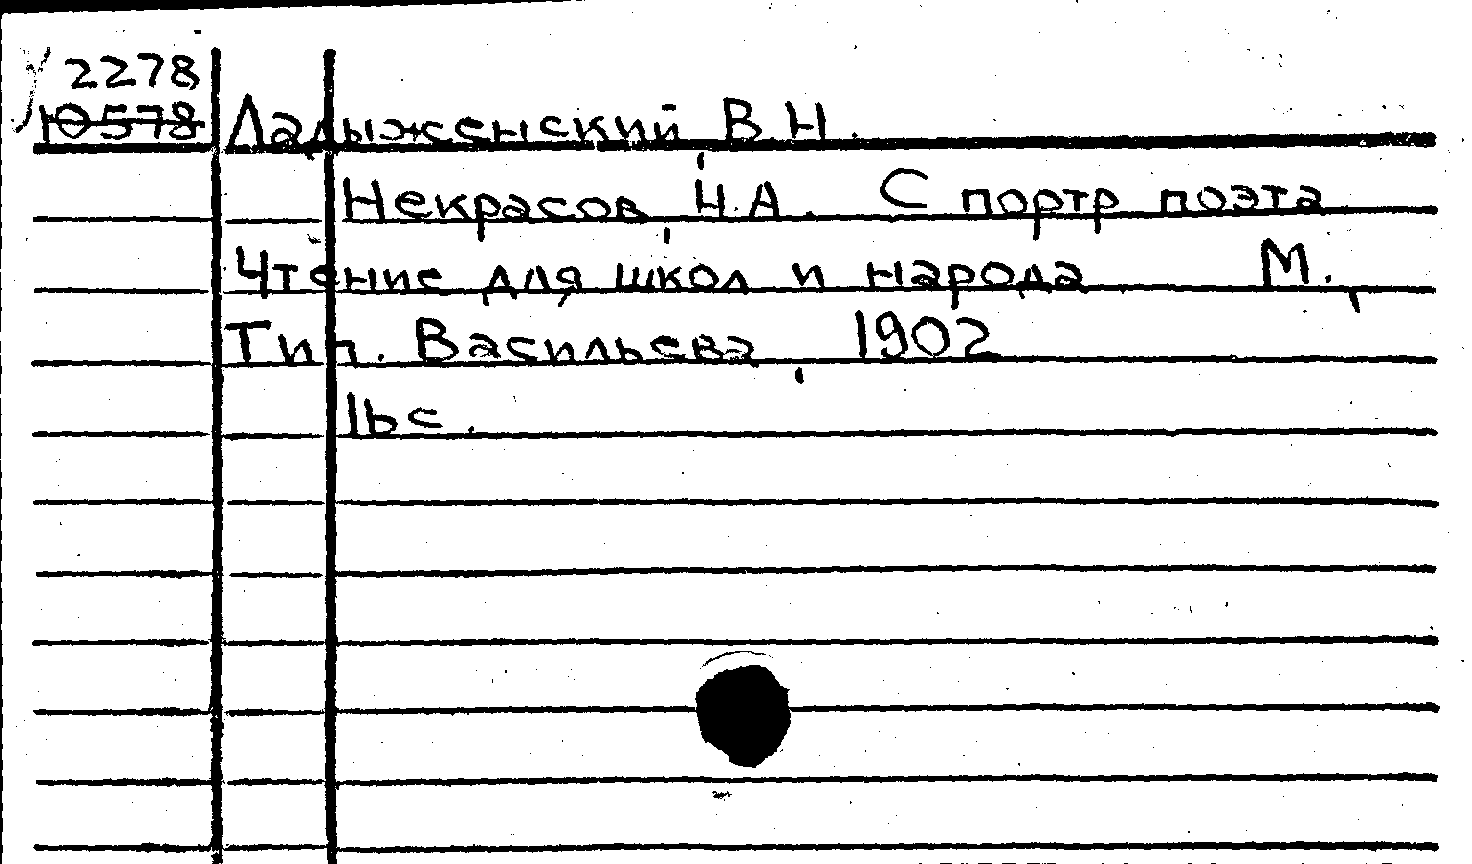 2278
10578 Ладыженский В.Н.
Некрасов, Н.А. С портр поэта
Чтение для школ и народа М.,
Тип. Васильева, 1902
16с.